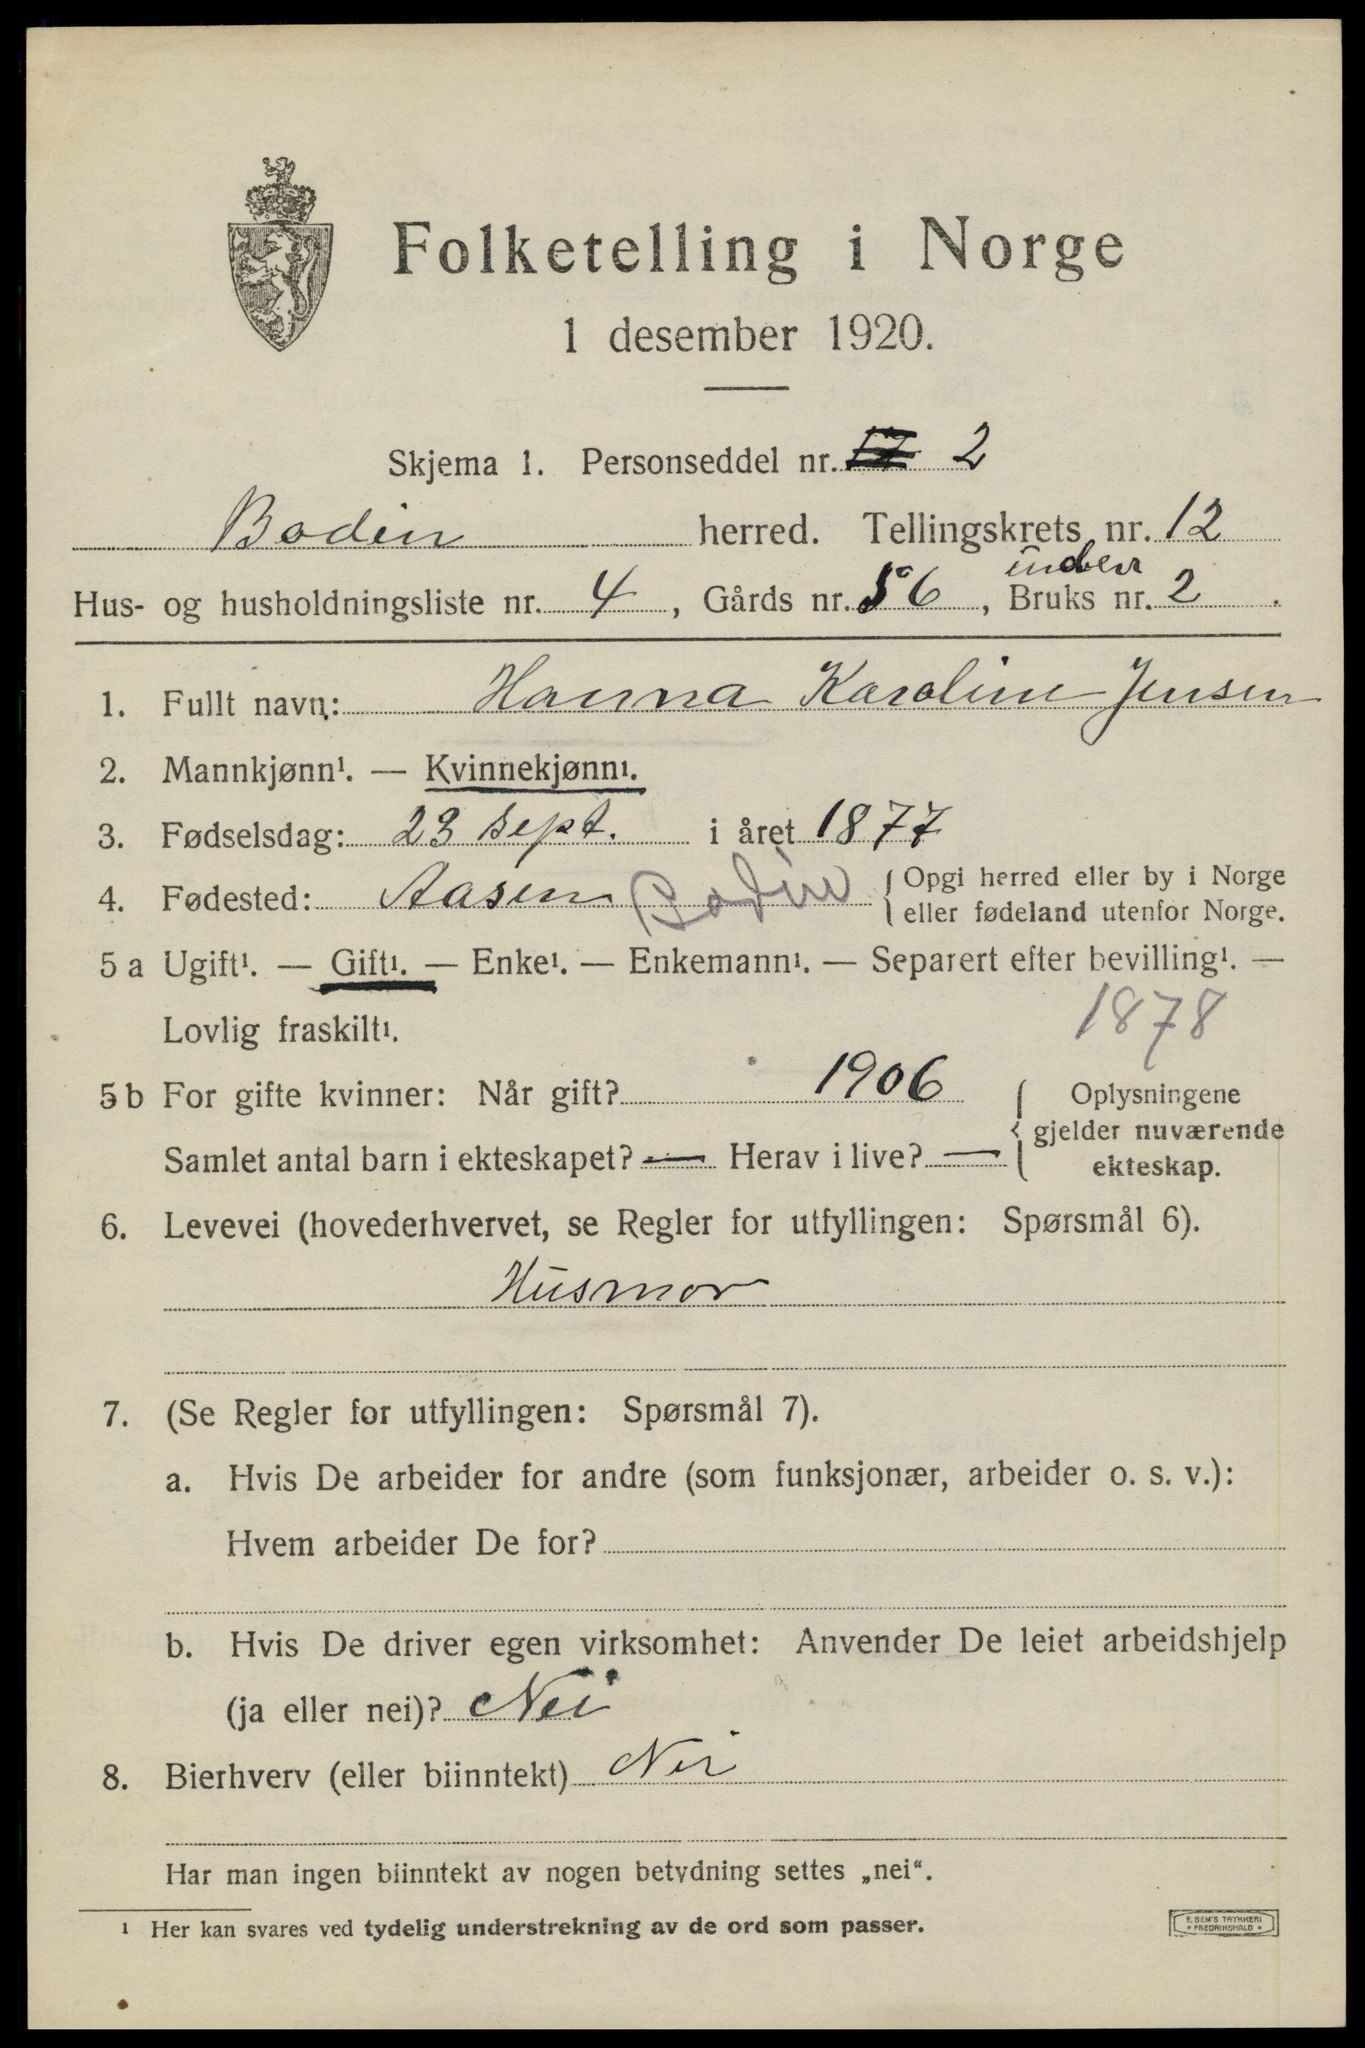 Folketelling i Norge
1 desember 1920.
Skjema 1. Personseddel nr. 17 2
Bodin herred. Tellingskrets nr. 12
under
Hus- og husholdningsliste nr. 4, Gårds nr. 56, Bruks nr. 2.
1. Fullt navn: Hanna Karoline Jensen
2. Mannkjønn¹. — Kvinnekjønn¹.
3. Fødselsdag: 23 sept. i året 1877
4. Fødested: Aasen Bodin { Opgi herred eller by i Norge
eller fødeland utenfor Norge.
5 a Ugift¹. — Gift¹. — Enke¹. — Enkemann¹. — Separert efter bevilling¹. —
Lovlig fraskilt¹. 1878
5 b For gifte kvinner: Når gift? 1906 { Oplysningene
gjelder nuværende
Samlet antal barn i ekteskapet? — Herav i live? — ekteskap.
6. Levevei (hovederhvervet, se Regler for utfyllingen: Spørsmål 6).
Husmor
7. (Se Regler for utfyllingen: Spørsmål 7).
a. Hvis De arbeider for andre (som funksjonær, arbeider o. s. v.):
Hvem arbeider De for?
b. Hvis De driver egen virksomhet: Anvender De leiet arbeidshjelp
(ja eller nei)? Nei
8. Bierhverv (eller biinntekt) Nei
Har man ingen biinntekt av nogen betydning settes „nei“.
¹ Her kan svares ved tydelig understrekning av de ord som passer.
E. SEM'S TRYKKERI
FREDRIKSHALD